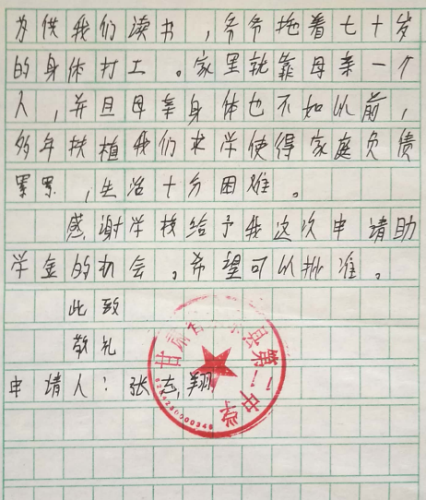 为供我们读书，爷爷拖着七十岁
的身体打工。家里就靠母亲一个
人，并且母亲身体也不如以前，
多年扶植我们求学使得家庭负债
累累，生活十分困难。
感谢学校给予我这次申请助
学金的机会。希望可以批准。
此致
敬礼
申请人：张志翔
甘肃省 县第二中学